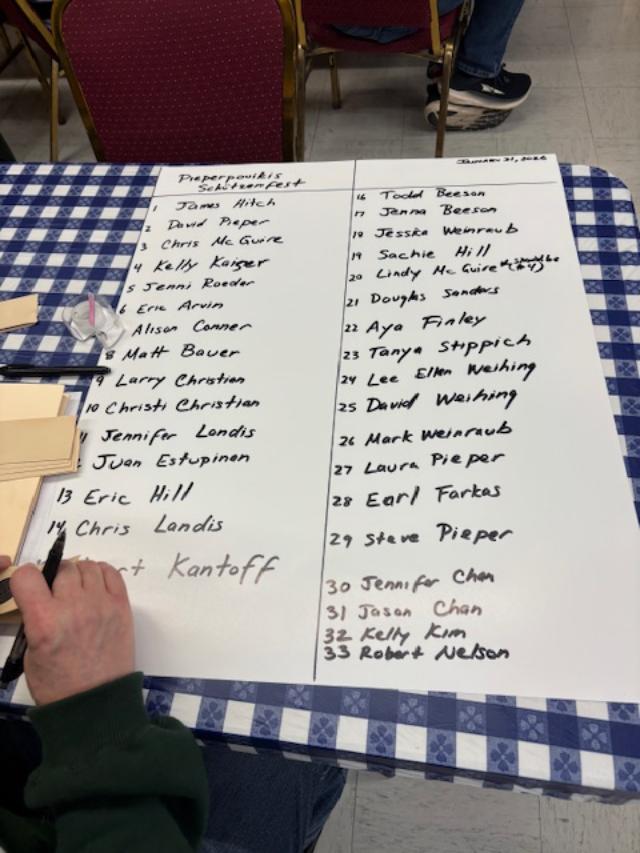 Pieperpouikis
Schützenfest
1 James Hitch
2 David Pieper
3 Chris McGuire
4 Kelly Kaiser
5 Jenni Roeder
6 Eric Arvin
Alison Conner
8 Matt Bauer
9 Larry Christian
10 Christi Christian
11 Jennifer Landis
Juan Estupinan
13 Eric Hill
14 Chris Landis
Kantoff
January 31, 2026
16 Todd Beeson
17 Jenna Beeson
18 Jesska Weinraub
19 Sachie Hill
20 Lindy McGuire * should be (#4)
21 Douglas Sanders
22 Aya Finley
23 Tanya Stippich
24 Lee Ellen Weihing
25 David Weihing
26 Mark Weinraub
27 Laura Pieper
28 Earl Farkas
29 Steve Pieper
30 Jennifer Chan
31 Jason Chan
32 Kelly Kim
33 Robert Nelson